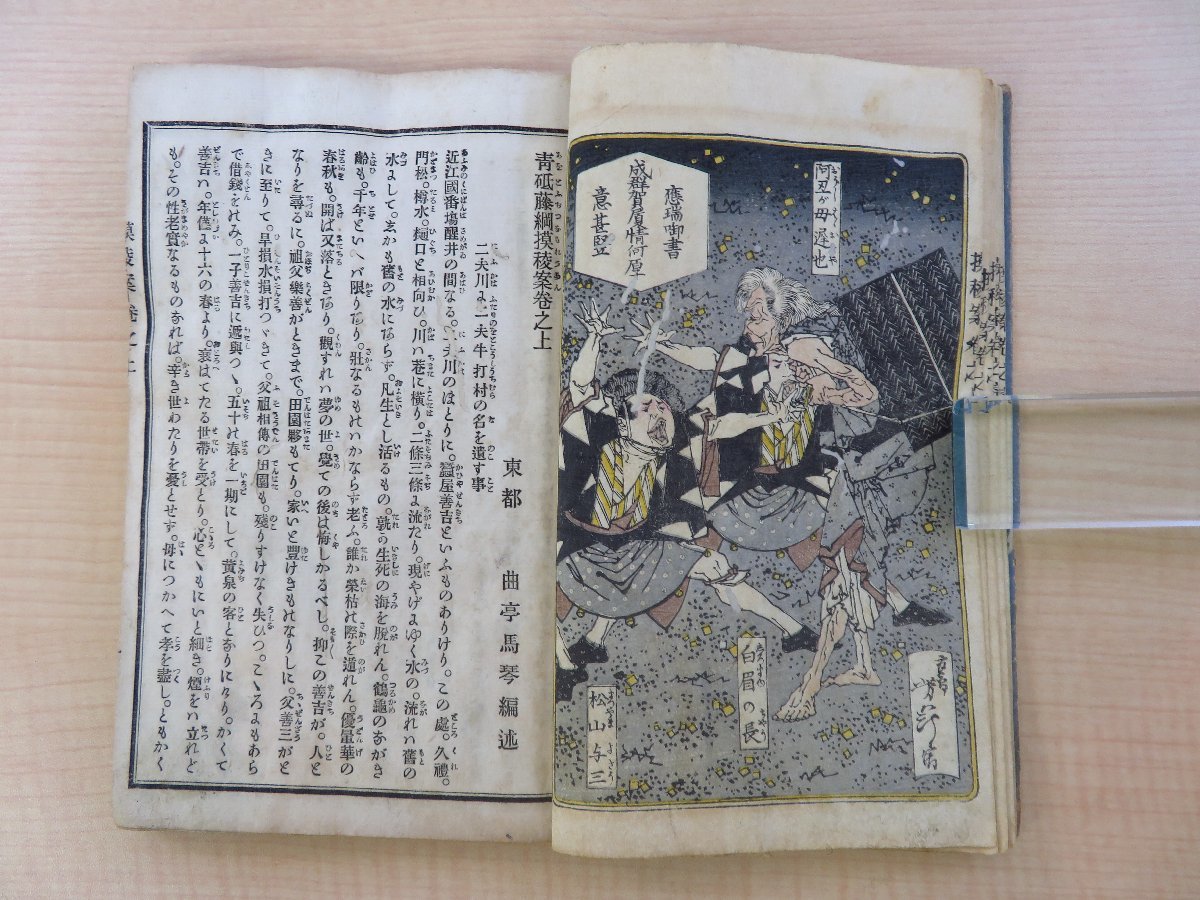 應瑞御書
成群賀廈情何厚
意甚堅
阿丑が母遅也
白眉の長
松山与三
青砥藤綱摸稜案卷之上
東都 曲亭馬琴編述
二夫川に二夫牛打村の名を遺す事
近江國番塲醒井の間なる。二夫川のほとりに。蠶屋善吉といふものありけり。この處。久禮。
門松。樽水。樋口と相向ひ。川ハ巷に橫り。二條三條に流たり。現やげにゆく水の。流れハ舊の
水にして。志かも舊の水にあらず。凡生とし活るもの。孰か生死の海を脫れん。鶴龜のながき
齡も。千年といへバ限りあり。壯なるものハかならず老ふ。誰か榮枯の際を遁れん。優曇華の
春秋も。開ば又落ときあり。觀すれハ夢の世。覺ての後は悔しかるべし。抑この善吉が。人と
なりを尋るに。祖父樂善がときまで。田園夥もてり。家いと豐けきものなりしに。父善三がと
きに至りて。旱損水損打つゞきて。父祖相傳の田園も。殘りすけなく失ひつ。こゝろにもあら
で借錢をのみ。一子善吉に遞與つゝ。五十の春を一期にして。黄泉の客となりにけり。かくて
善吉ハ。年僅に十六の春より。衰はてたる世帶を受とり。心とゝもにいと細き。煙をハ立れど
も。その性老實なるものなれば。辛き世わたりを憂とせず。母につかへて孝を盡し。ともかく
摸稜案卷之上